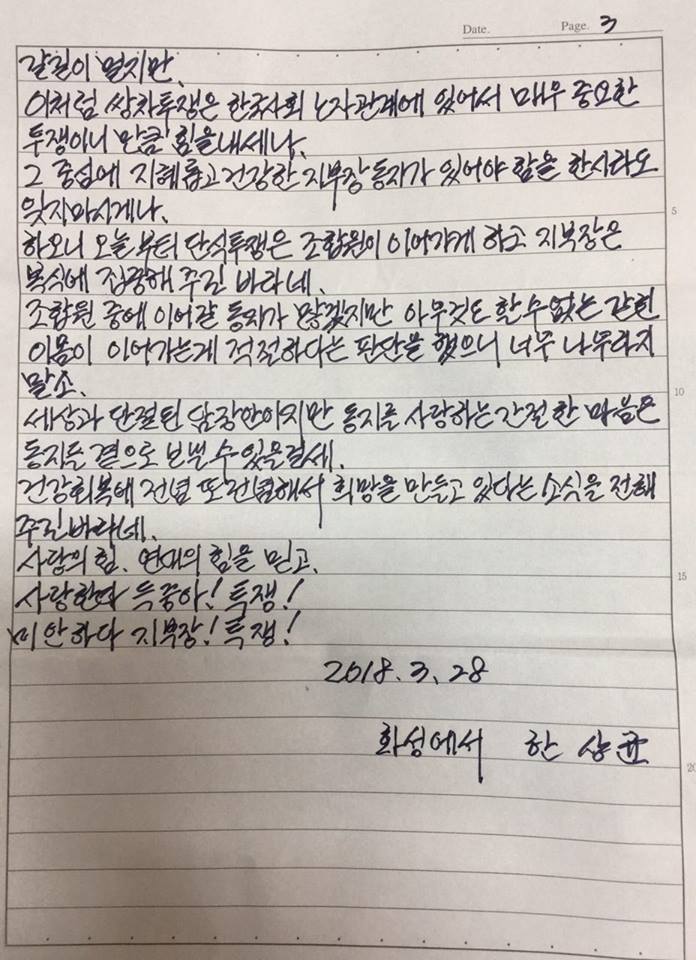 Date. Page. 3
갈길이 멀지만,
이처럼 쌍차투쟁은 한국사회 노자관계에 있어서 매우 중요한
투쟁이니 만큼 힘을내세나.
그 중심에 지혜롭고 건강한 지부장 동지가 있어야 함을 한시라도
잊지마시게나.
하오니 오늘 부터 단식투쟁은 조합원이 이어가게 하고 지부장은
복식에 집중해 주길 바라네.
조합원 중에 이어갈 동지가 많겠지만 아무것도 할 수 없는 갇힌
이몸이 이어가는게 적절하다는 판단을 했으니 너무 나무라지
말소.
세상과 단절된 담장안이지만 동지를 사랑하는 간절한 마음은
동지들 곁으로 보낼 수 있을걸세.
건강회복에 전념 또 전념해서 희망을 만들고 있다는 소식을 전해
주길바라네.
사랑의 힘. 연대의 힘을 믿고.
사랑한다 득중아! 투쟁!
미안하다 지부장! 투쟁!
2018. 3. 28
화성에서 한상균
5
10
15
20